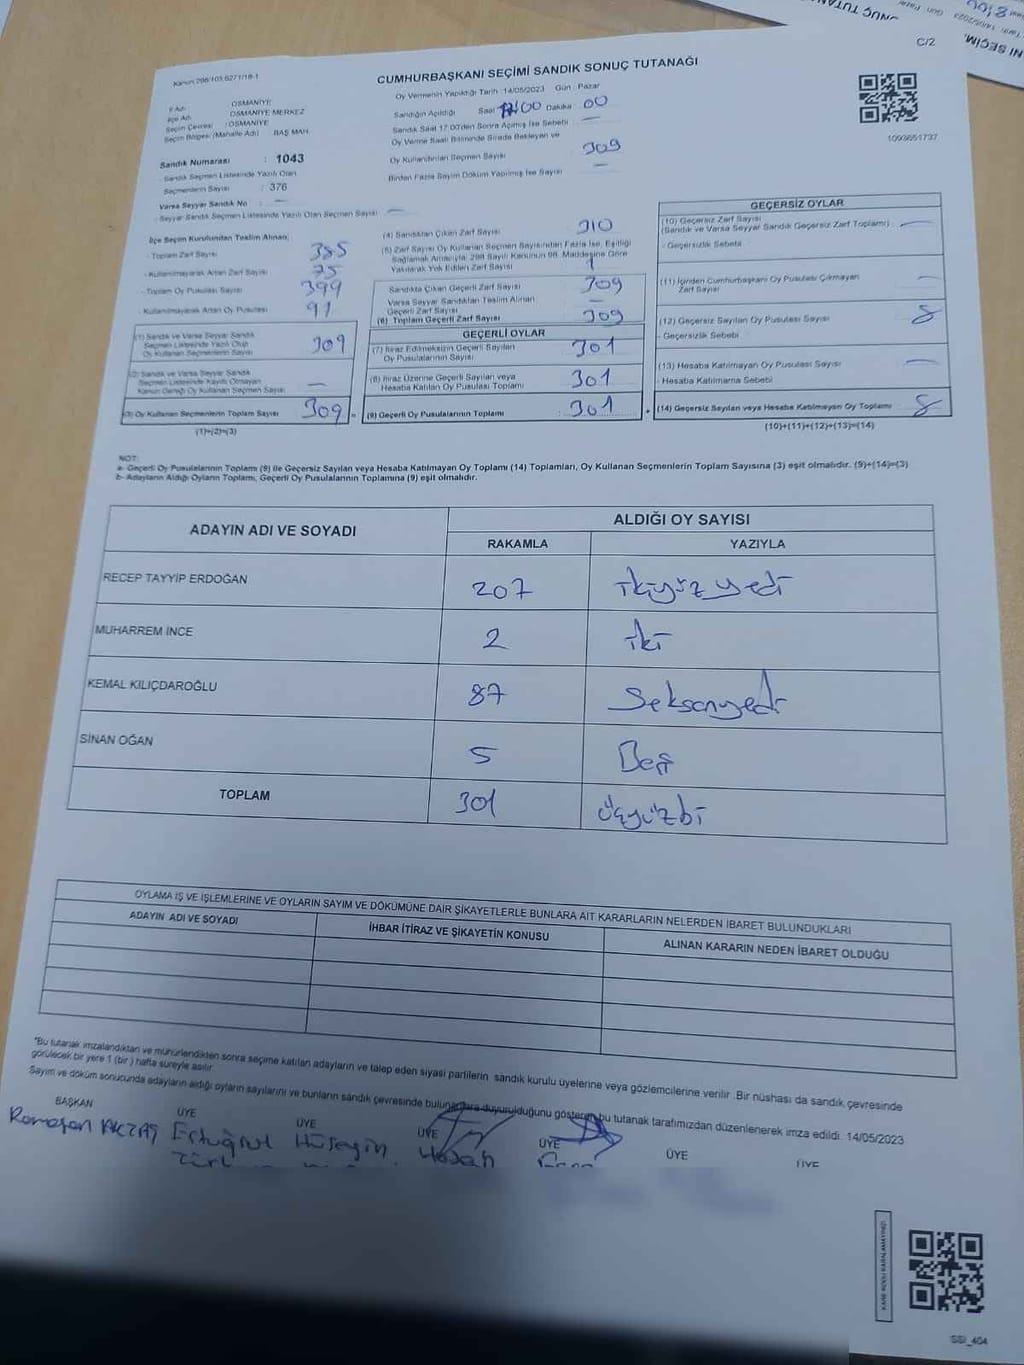 C/2
Kanun 298/103,6271/18-1
CUMHURBAŞKANI SEÇİMİ SANDIK SONUÇ TUTANAĞI
Oy Vermenin Yapıldığı Tarih :14/05/2023 Gün : Pazar
İl Adı : OSMANİYE
İlçe Adı : OSMANİYE MERKEZ
Seçim Çevresi : OSMANİYE
Seçim Bölgesi (Mahalle Adı) : BAŞ MAH.
Sandığın Açıldığı Saat :00 Dakika :00
Sandık Saat 17:00'den Sonra Açılmış İse Sebebi : —
Oy Verme Saati Bitiminde Sırada Bekleyen ve
Oy Kullandırılan Seçmen Sayısı 309
Birden Fazla Sayım Döküm Yapılmış İse Sayısı —
1093651737
Sandık Numarası : 1043
- Sandık Seçmen Listesinde Yazılı Olan
Seçmenlerin Sayısı : 376
Varsa Seyyar Sandık No : —
- Seyyar Sandık Seçmen Listesinde Yazılı Olan Seçmen Sayısı : —
İlçe Seçim Kurulundan Teslim Alınan;
- Toplam Zarf Sayısı 385
- Kullanılmayarak Artan Zarf Sayısı 75
- Toplam Oy Pusulası Sayısı 399
- Kullanılmayarak Artan Oy Pusulası 91
(1) Sandık ve Varsa Seyyar Sandık
Seçmen Listesinde Yazılı Olup
Oy Kullanan Seçmenlerin Sayısı 309
(2) Sandık ve Varsa Seyyar Sandık
Seçmen Listesinde Kayıtlı Olmayan
Kanun Gereği Oy Kullanan Seçmen Sayısı —
(3) Oy Kullanan Seçmenlerin Toplam Sayısı 309 =
(1)+(2)=(3)
(4) Sandıktan Çıkan Zarf Sayısı 310
(5) Zarf Sayısı Oy Kullanan Seçmen Sayısından Fazla İse, Eşitliği
Sağlamak Amacıyla; 298 Sayılı Kanunun 98. Maddesine Göre
Yakılarak Yok Edilen Zarf Sayısı 1
Sandıkta Çıkan Geçerli Zarf Sayısı 309
Varsa Seyyar Sandıktan Teslim Alınan
Geçerli Zarf Sayısı —
(6) Toplam Geçerli Zarf Sayısı 309
GEÇERLİ OYLAR
(7) İtiraz Edilmeksizin Geçerli Sayılan
Oy Pusulalarının Sayısı 301
(8) İtiraz Üzerine Geçerli Sayılan veya
Hesaba Katılan Oy Pusulası Toplamı 301
(9) Geçerli Oy Pusulalarının Toplamı : 301 +
GEÇERSİZ OYLAR
(10) Geçersiz Zarf Sayısı
(Sandık ve Varsa Seyyar Sandık Geçersiz Zarf Toplamı) —
- Geçersizlik Sebebi
(11) İçinden Cumhurbaşkanı Oy Pusulası Çıkmayan
Zarf Sayısı —
(12) Geçersiz Sayılan Oy Pusulası Sayısı 8
- Geçersizlik Sebebi
(13) Hesaba Katılmayan Oy Pusulası Sayısı —
- Hesaba Katılmama Sebebi
(14) Geçersiz Sayılan veya Hesaba Katılmayan Oy Toplamı 8
(10)+(11)+(12)+(13)=(14)
NOT:
a- Geçerli Oy Pusulalarının Toplamı (9) ile Geçersiz Sayılan veya Hesaba Katılmayan Oy Toplamı (14) Toplamları, Oy Kullanan Seçmenlerin Toplam Sayısına (3) eşit olmalıdır. (9)+(14)=(3)
b- Adayların Aldığı Oyların Toplamı, Geçerli Oy Pusulalarının Toplamına (9) eşit olmalıdır.
ADAYIN ADI VE SOYADI ALDIĞI OY SAYISI
RAKAMLA YAZIYLA
RECEP TAYYİP ERDOĞAN 207 ikiyüz yedi
MUHARREM İNCE 2 iki
KEMAL KILIÇDAROĞLU 87 Seksenyedi
SİNAN OĞAN 5 Beş
TOPLAM 301 üçyüzbi
OYLAMA İŞ VE İŞLEMLERİNE VE OYLARIN SAYIM VE DÖKÜMÜNE DAİR ŞİKAYETLERLE BUNLARA AİT KARARLARIN NELERDEN İBARET BULUNDUKLARI
ADAYIN ADI VE SOYADI İHBAR İTİRAZ VE ŞİKAYETİN KONUSU ALINAN KARARIN NEDEN İBARET OLDUĞU
*Bu tutanak imzalandıktan ve mühürlendikten sonra seçime katılan adayların ve talep eden siyasi partilerin sandık kurulu üyelerine veya gözlemcilerine verilir. Bir nüshası da sandık çevresinde
görülecek bir yere 1 (bir) hafta süreyle asılır.
Sayım ve döküm sonucunda adayların aldığı oyların sayılarını ve bunların sandık çevresinde bulunanlara duyurulduğunu gösteren bu tutanak tarafımızdan düzenlenerek imza edildi. 14/05/2023
BAŞKAN ÜYE ÜYE ÜYE ÜYE ÜYE ÜYE
Ramazan Ertuğrul Hüseyin Hasan
SSI_404